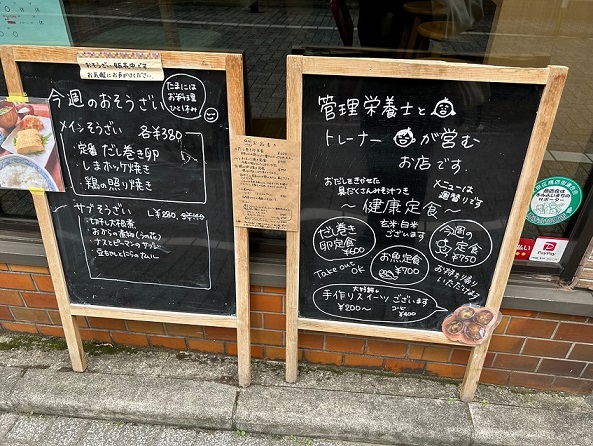 おそうざい販売中です
お気軽にお声がけください
今週のおそうざい
たまには
お料理
ひとやすみ
メインそうざい 各¥380
・定番 だし巻き卵
・しまホッケ焼き
・鶏の照り焼き
サブそうざい L¥230
・切干し大根煮
・おからの煮物(うの花)
・ナスとピーマンの
管理栄養士と
トレーナー が営む
お店です
おだしをきかせた
具だくさんみそ汁つき
メニューは
週替りです
～健康定食～
だし巻き
卵定食
¥600
玄米 白米
ございます
お魚定食
¥700
今週の
定食
¥750
Take out
OK
お持ち帰り
いただけます
大好評
手作りスイーツ ございます
¥200～
コーヒー
¥400
PayPay